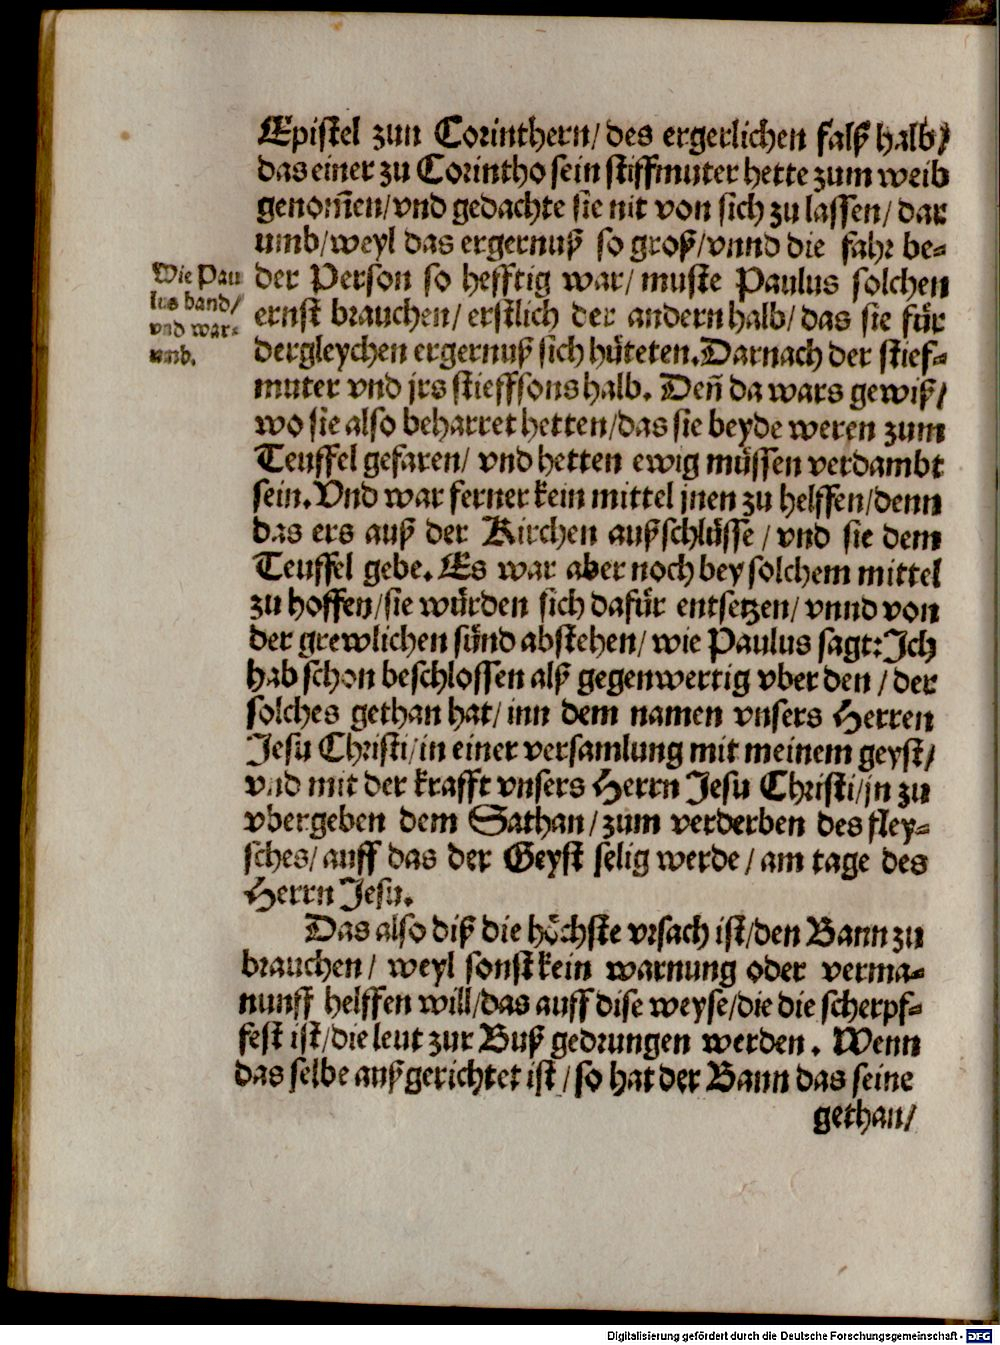 Epistel zun Corinthern/ des ergerlichen falß halb/
das einer zu Corintho sein stiffmuter hette zum weib
genom̄en/vnd gedachte sie nit von sich zu lassen/ dar
umb/weyl das ergernuß so groß/vnnd die fahr be-
der Person so hefftig war/ muste Paulus solchen
ernst brauchen/ erstlich der andern halb/ das sie für
dergleychen ergernuß sich hüteten. Darnach der stief-
muter vnd jrs stieffsons halb. Deñ da wars gewiß/
wo sie also beharret hetten/das sie beyde weren zum
Teuffel gefaren/ vnd hetten ewig müssen verdambt
sein. Vnd war ferner kein mittel jnen zu helffen/denn
das ers auß der Kirchen außschlüsse/ vnd sie dem
Teuffel gebe. Es war aber noch bey solchem mittel
zu hoffen/sie würden sich dafür entsetzen/ vnnd von
der grewlichen sünd abstehen/ wie Paulus sagt: Ich
hab schon beschlossen alß gegenwertig vber den/ der
solches gethan hat/ inn dem namen vnsers Herren
Jesu Christi/in einer versamlung mit meinem geyst/
vnd mit der krafft vnsers Herrn Jesu Christi/jn zu
vbergeben dem Sathan/zum verderben des fley-
sches/ auff das der Geyst selig werde/ am tage des
Herrn Jesu.
Das also diß die höchste vrsach ist/den Bann zu
brauchen/ weyl sonst kein warnung oder verma-
nunff helffen will/das auff dise weyse/die die scherpf-
fest ist/die leut zur Buß gedrungen werden. Wenn
das selbe außgerichtet ist/ so hat der Bann das seine
gethan/
Wie Pau
lus band/
vnd war-
umb.
Digitalisierung gefördert durch die Deutsche Forschungsgemeinschaft - DFG